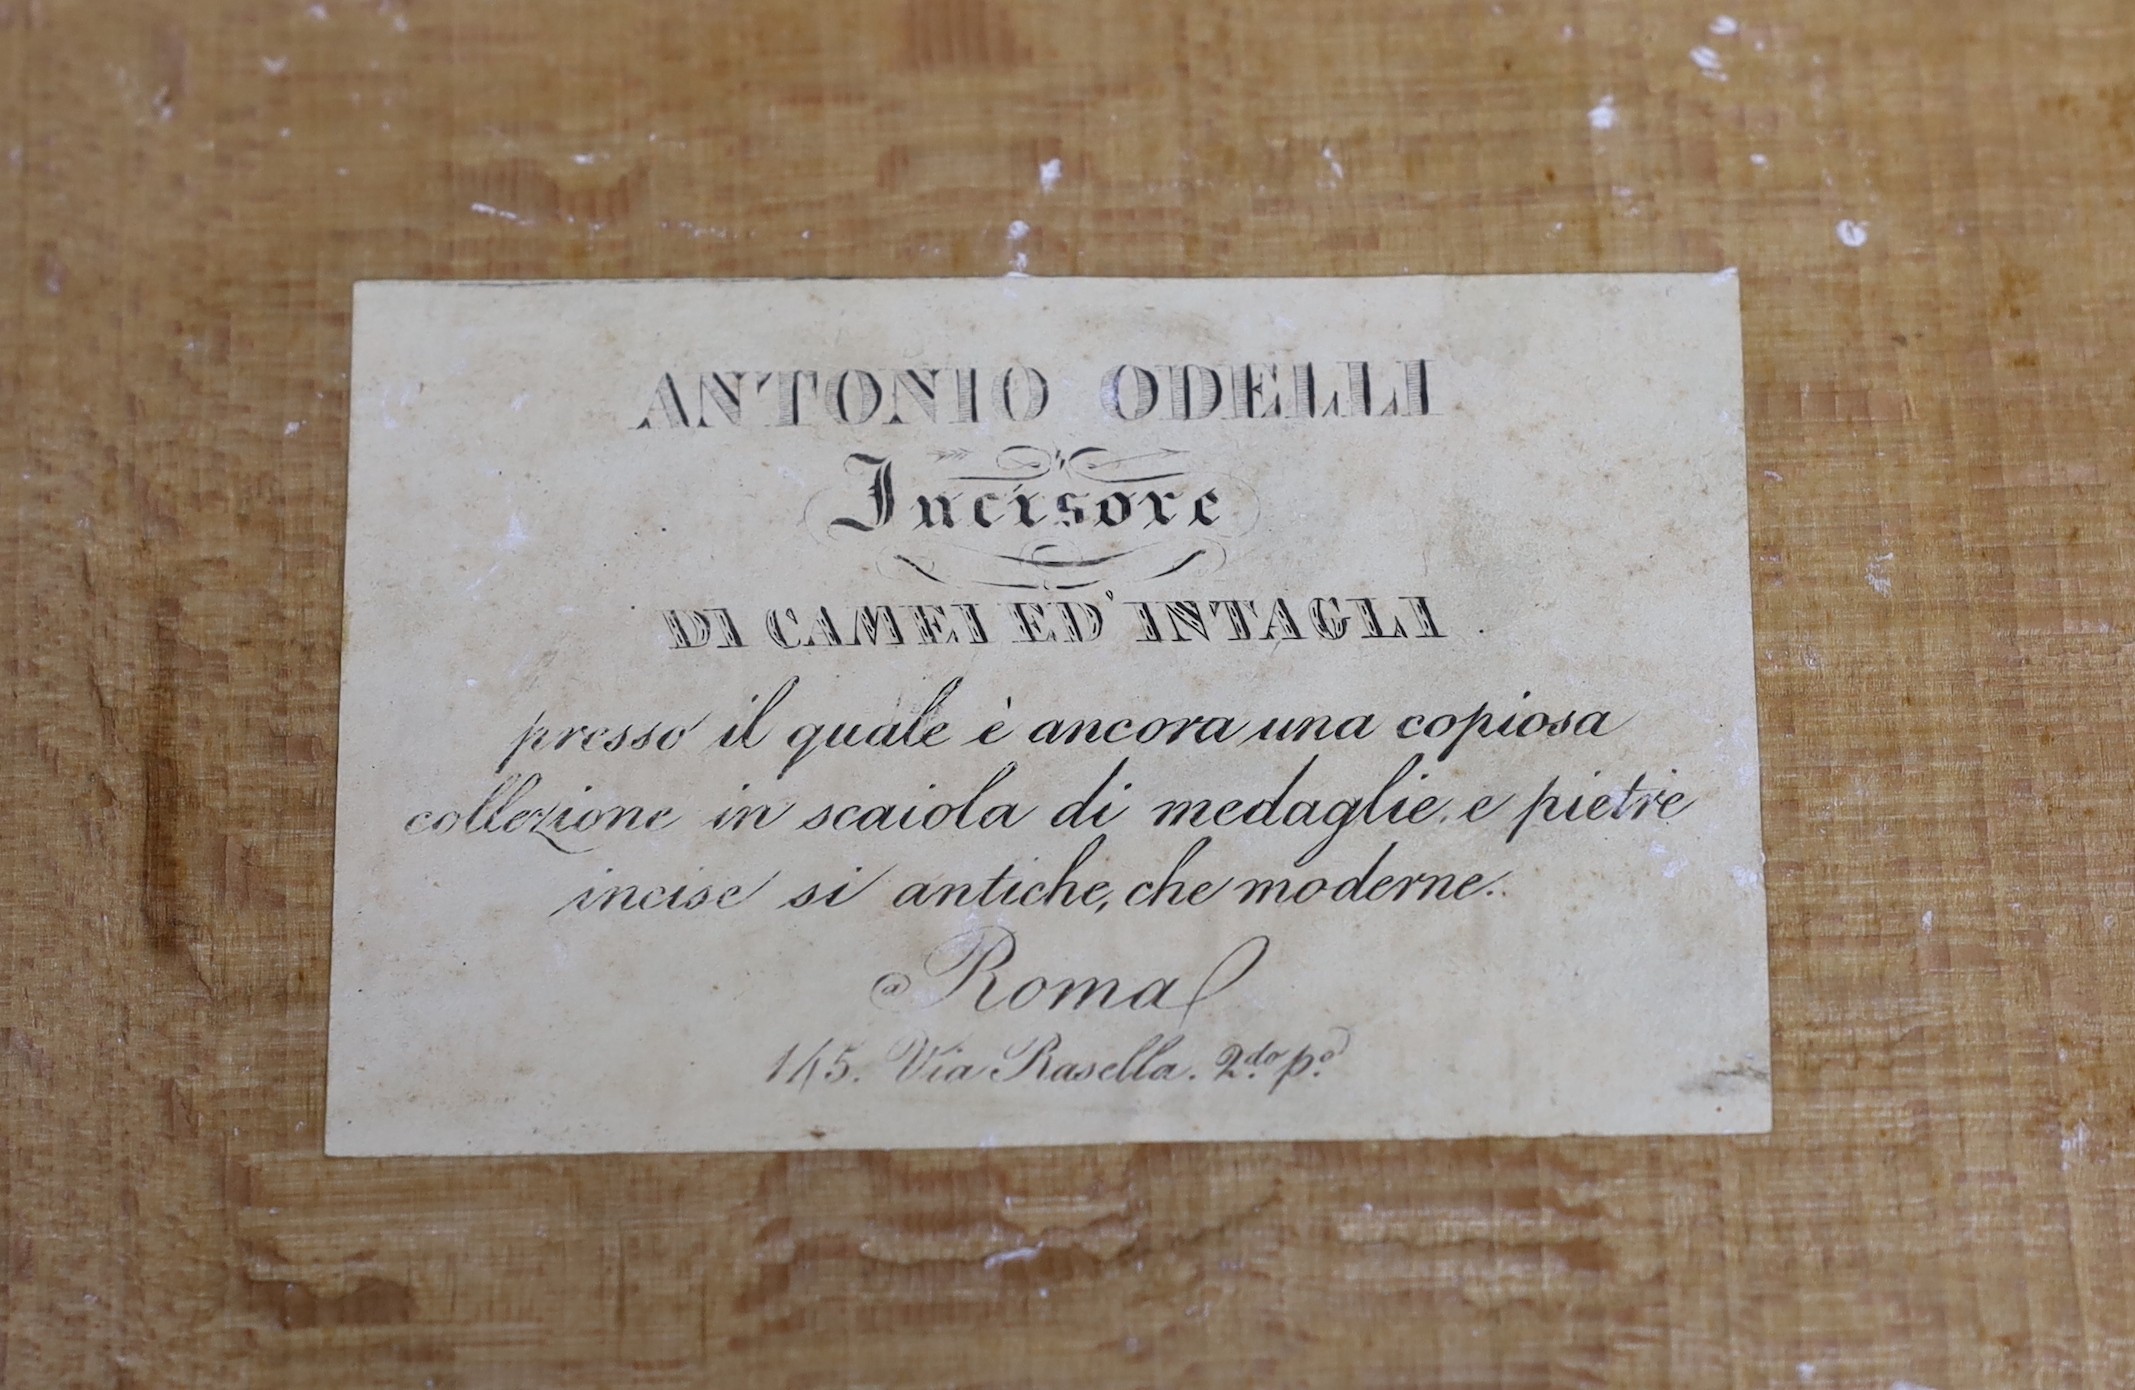 ANTONIO ODELLI
Incisore
DI CAMEI ED' INTAGLI
presso il quale è ancora una copiosa
collezione in scaiola di medaglie, e pietre
incise si antiche, che moderne.
Roma
145. Via Rasella. 2.do p.o